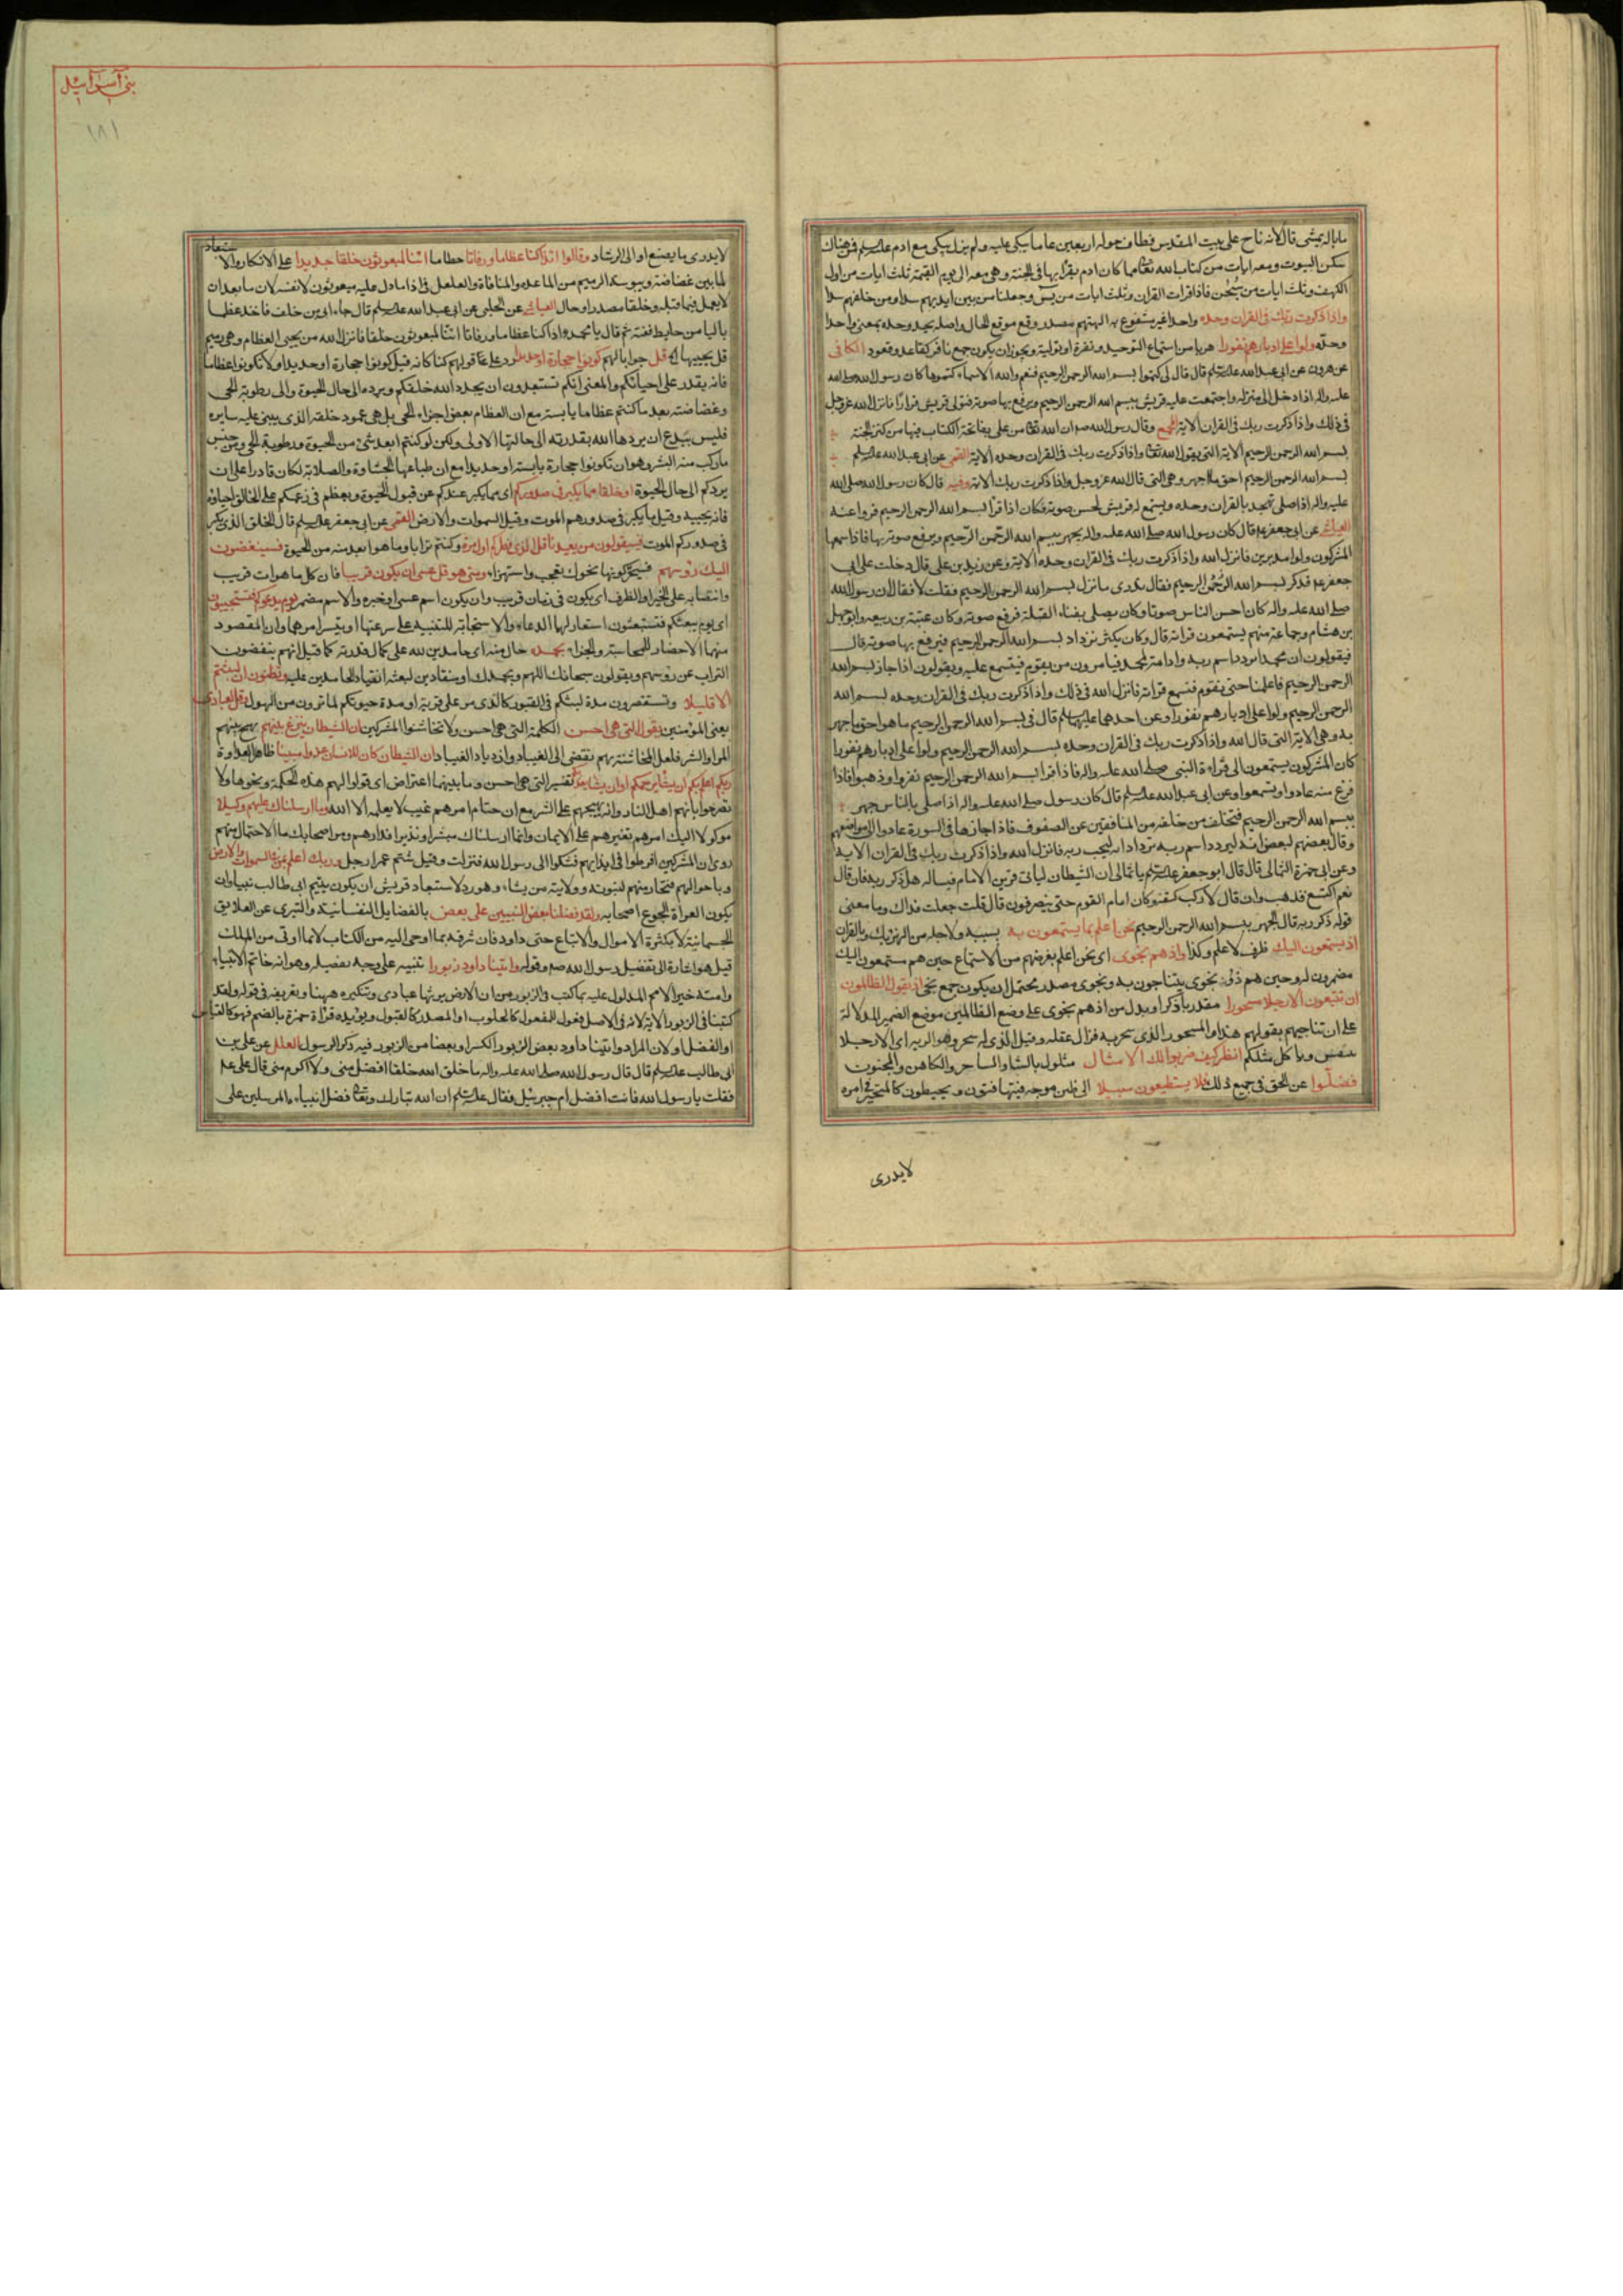 مابالہ یمشی قال لانہ ناح علی بیت المقدس فطاف حولہ اربعین عاما یبکی علیہ ولم یزل یبکی مع ادم علیہ السلم فمن هناك
سکن البیوت ومعہ ایات من کتاب الله تعا مما کان ادم یقرأ بها فی الجنة وهی معہ الی یوم القیمة ثلث ایات من اول
الکهف وثلث ایات من سبحن فاذا قرات القران وثلث ایات من یس وجعلنا من بین ایدیهم سدا ومن خلفهم سدا
واذا ذکرت ربك فی القران وحده واحدا غیر مشفوع به الهتهم مصدر وقع موقع الحال واصلہ یحد وحده بمعنی واحدا
وحده ولوا علی ادبارهم نفورا هربا من استماع التوحید ونفرة او تولیة ویجوز ان یکون جمع نافر کقاعد وقعود الکافی
عن هرون عن ابی عبد الله علیہ السلم قال قال لی کتموا بسم الله الرحمن الرحیم فنعم والله الاسماء کتموها کان رسول الله صلی الله
علیہ والہ اذا دخل الی منزلہ واجتمعت علیہ قریش یجهر ببسم الله الرحمن الرحیم ویرفع بها صوتہ فتولی قریش فرارا فانزل الله عز وجل
فی ذلك واذا ذکرت ربك فی القران الایة المجمع وقال رسول الله ص ان الله تعا من علی بفاتحة الکتاب فیها من کنز الجنة
بسم الله الرحمن الرحیم الایة التی یقول الله تعا واذا ذکرت ربك فی القران وحده الایة القمی عن ابی عبد الله علیہ السلم
بسم الله الرحمن الرحیم احق ما اجهر وهی التی قال الله عز وجل واذا ذکرت ربك الایة وفیہ قال کان رسول الله صلی الله
علیہ والہ اذا صلی تهجد بالقران وحده ویستمع لہ قریش لحسن صوتہ فکان اذا قرأ بسم الله الرحمن الرحیم فروا عنہ
العیاشی عن ابی جعفر ع قال کان رسول الله صلی الله علیہ والہ یجهر ببسم الله الرحمن الرحیم ویرفع صوتہ بها فاذا سمعها
المشرکون ولوا مدبرین فانزل الله واذا ذکرت ربك فی القران وحده الایة وعن زید بن علی قال دخلت علی ابی
جعفر ع فذکر بسم الله الرحمن الرحیم فقال تدری ما نزل بسم الله الرحمن الرحیم فقلت لا فقال ان رسول الله
صلی الله علیہ والہ کان احسن الناس صوتا وکان یصلی بفناء القبلة فرفع صوتہ وکان عتبة بن ربیعہ وابو جهل
بن هشام وجماعة منهم یستمعون قراتہ قال وکان یکثر ترداد بسم الله الرحمن الرحیم فیرفع بها صوتہ قال
فیقولون ان محمدا یردد اسم ربہ فیامرون من یقوم فیستمع علیہ ویقولون اذا جاز بسم الله
الرحمن الرحیم فاعلمنا حتی نقوم فنسمع قراتہ فانزل الله فی ذلك واذا ذکرت ربك فی القران وحده بسم الله
الرحمن الرحیم ولوا علی ادبارهم نفورا وعن احدهما علیهما السلم قال فی بسم الله الرحمن الرحیم ما هو احق ما جهر
به وهی الایة التی قال الله واذا ذکرت ربك فی القران وحده بسم الله الرحمن الرحیم ولوا علی ادبارهم نفورا
کان المشرکون یستمعون الی قراءة النبی صلی الله علیہ والہ فاذا قرا بسم الله الرحمن الرحیم نفروا وذهبوا فاذا
فرغ منہ عادوا وتسمعوا وعن ابی عبد الله علیہ السلم قال کان رسول صلی الله علیہ والہ اذا صلی بالناس جهر
ببسم الله الرحمن الرحیم فتخلف من خلفہ من المنافقین عن الصفوف فاذا جازها فی السورة عادوا الی مواضعهم
وقال بعضهم لبعض انہ لیردد اسم ربہ تردادا انہ لیحب ربہ فانزل الله واذا ذکرت ربك فی القران الایة
وعن ابی حمزة الثمالی قال قال ابو جعفر علیہ السلم یا ثمالی ان الشیطان لیاتی قرین الامام فیسالہ هل ذکر ربہ فان قال
نعم اکتسع فذهب وان قال لا رکب کتفہ وکان امام القوم حتی ینصرفون قال قلت جعلت فداك وما معنی
قولہ ذکر ربہ قال الجهر ببسم الله الرحمن الرحیم نحن اعلم بما یستمعون به بسببہ ولاجلہ من الهزء بك وبالقران
اذ یستمعون الیك ظرف لاعلم وکذا واذ هم نجوی ای نحن اعلم بغرضهم من الاستماع حین هم مستمعون الیك
مضمرون لہ وحین هم ذوو نجوی یتناجون به ونجوی مصدر یحتمل ان یکون جمع نجی اذ یقول الظالمون
ان تتبعون الا رجلا مسحورا مقدر باذکر او بدل من اذ هم نجوی علی وضع الظالمین موضع الضمیر للدلالة
علی ان تناجیهم بقولهم هذا والمسحور الذی سحر به فزال عقلہ وقیل الذی لہ سحر وهو الریہ ای الا رجلا
یتنفس ویاکل مثلکم انظر کیف ضربوا لك الامثال مثلوك بالشاعر والساحر والکاهن والمجنون
فضلوا عن الحق فی جمیع ذلك فلا یستطیعون سبیلا الی طعن موجہ فیتهافتون ویخبطون کالمتحیر فی امره
لایدری
بنی اسرائیل
۱۸۱
لایدری ما یصنع او الی الرشاد وقالوا ائذا کنا عظاما ورفاتا حطاما ائنا لمبعوثون خلقا جدیدا علی الانکار والاستبعاد
لما بین غضاضة ویبوسة الرمیم من المباعدة والمنافاة والعامل فی اذا ما دل علیہ مبعوثون لا نفسہ لان ما بعد ان
لا یعمل فیما قبلہ وخلقا مصدر او حال العیاشی عن الحلبی عن ابی عبد الله علیہ السلم قال جاء ابی بن خلف فاخذ عظما
بالیا من حایط ففتہ ثم قال یا محمد اذا کنا عظاما ورفاتا ائنا لمبعوثون خلقا فانزل الله من یحیی العظام وهی رمیم
قل یحییها الخ قل جوابا لهم کونوا حجارة او حدیدا رد علی قولهم کنا کانہ قیل کونوا حجارة او حدیدا ولا تکونوا عظاما
فانہ یقدر علی احیائکم والمعنی انکم تستبعدون ان یجدد الله خلقکم ویرده الی حال الحیوة والی رطوبة الحی
وغضاضتہ بعد ما کنتم عظاما یابسة مع ان العظام بعض اجزاء الحی بل هی عمود خلقہ الذی یبنی علیہ سایره
فلیس ببدع ان یردها الله بقدرتہ الی حالتها الاولی ولکن لو کنتم ابعد شیء من الحیوة ورطوبة الحی ومن جنس
ما رکب منہ البشر وهو ان تکونوا حجارة یابسة او حدیدا مع ان طباعها الجساوة والصلابة لکان قادرا علی ان
یردکم الی حال الحیوة او خلقا مما یکبر فی صدورکم ای مما یکبر عندکم عن قبول الحیوة ویعظم فی زعمکم علی الخالق احیاؤه
فانہ یحییہ وقیل ما یکبر فی صدورهم الموت وقیل السموات والارض القمی عن ابی جعفر علیہ السلم قال الخلق الذی یکبر
فی صدورکم الموت فسیقولون من یعیدنا قل الذی فطرکم اول مرة وکنتم ترابا وما هو ابعد منہ من الحیوة فسینغضون
الیك رؤسهم فسیحرکونها نحوك تعجبا واستهزاء ومتی هو قل عسی ان یکون قریبا فان کل ما هو ات قریب
وانتصابہ علی الخبر او الظرف ای یکون فی زمان قریب وان یکون اسم عسی او خبره والاسم مضمر یوم یدعوکم فتستجیبون
ای یوم یبعثکم فتنبعثون استعار لها الدعاء والاستجابة للتنبیہ علی سرعتها او تیسر امرهما وان المقصود
منها الاحضار للمحاسبة والجزاء بحمده حال منہ ای حامدین لله علی کمال قدرتہ کما قیل انهم ینفضون
التراب عن رؤسهم ویقولون سبحانك اللهم وبحمدك او منقادین لبعثہ انقیاد الحامدین علیہ وتظنون ان لبثتم
الا قلیلا وتستقصرون مدة لبثکم فی القبور کالذی مر علی قریة او مدة حیوتکم لما ترون من الهول وقل لعبادی
یعنی المؤمنین یقولوا التی هی احسن الکلمة التی هی احسن ولا تخاشنوا المشرکین ان الشیطان ینزغ بینهم یهیج بینهم
المراء والشر فلعل المخاشنة بهم تفضی الی العناد وازدیاد الفساد ان الشیطان کان للانسان عدوا مبینا ظاهر العداوة
ربکم اعلم بکم ان یشا یرحمکم او ان یشا یعذبکم تفسیر التی هی احسن وما بینهما اعتراض ای قولوا لهم هذه الکلمة ونحوها ولا
تصرحوا بانهم اهل النار فانہ یهیجهم علی الشر مع ان ختام امرهم غیب لا یعلمہ الا الله وما ارسلناك علیهم وکیلا
موکولا الیك امرهم تقسرهم علی الایمان وانما ارسلناك مبشرا ونذیرا فدارهم ومر اصحابك بالاحتمال منهم
روی ان المشرکین افرطوا فی ایذائهم فشکوا الی رسول الله فنزلت وقیل شتم عمر رجل وربك اعلم بمن فی السموات والارض
وباحوالهم فیختار منهم لنبوتہ وولایتہ من یشاء وهو رد لاستبعاد قریش ان یکون یتیم ابی طالب نبیا وان
یکون العراة الجوع اصحابہ ولقد فضلنا بعض النبیین علی بعض بالفضایل النفسانیة والتبری عن العلایق
الجسمانیة لا بکثرة الاموال والاتباع حتی داود فان شرفہ بما اوحی الیہ من الکتاب لا بما اوتی من الملك
قیل هو اشارة الی تفضیل رسول الله ص وقولہ واتینا داود زبورا تنبیہ علی وجہ تفضیلہ وهو انہ خاتم الانبیاء
وامتہ خیر الامم المدلول علیہ بما کتب فی الزبور من ان الارض یرثها عبادی وتنکیره ههنا وتعریفہ فی قولہ ولقد
کتبنا فی الزبور الایة لانہ فی الاصل فعول للمفعول کالحلوب او المصدر کالقبول ویؤیده قراة حمزة بالضم فهو کالعباس
او الفضل او لان المراد واتینا داود بعض الزبور الکسر او بعضا من الزبور فیہ ذکر الرسول العلل عن علی بن
ابی طالب علیہ السلم قال قال رسول الله صلی الله علیہ والہ ما خلق الله خلقا افضل منی ولا اکرم منی قال علی علیہ
فقلت یا رسول الله فانت افضل ام جبرئیل فقال علیہ السلم ان الله تبارك وتعا فضل انبیاءہ المرسلین علی